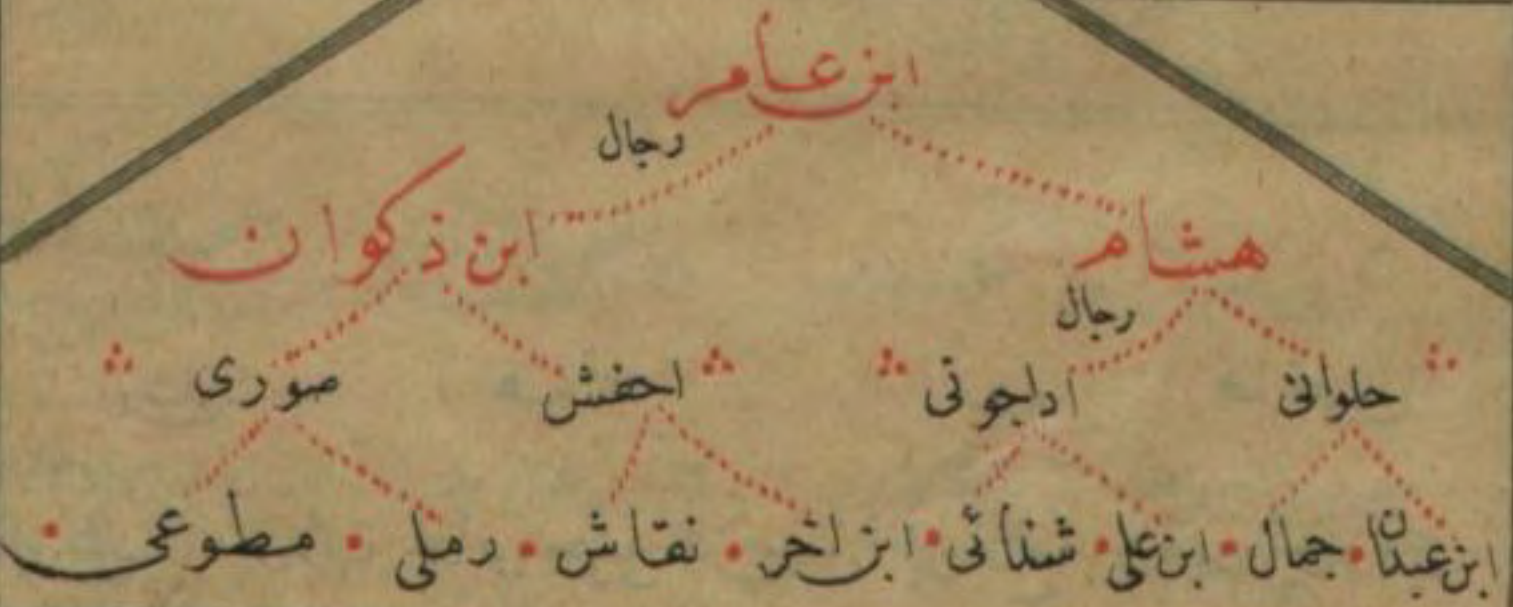 ابن عامر
رجال
هشام ابن ذكوان
رجال
حلوانی اداجونی احفش صوری
ابن عبدان جمال ابن علی شنائی ابن اخر نقاش رملی مطوعی